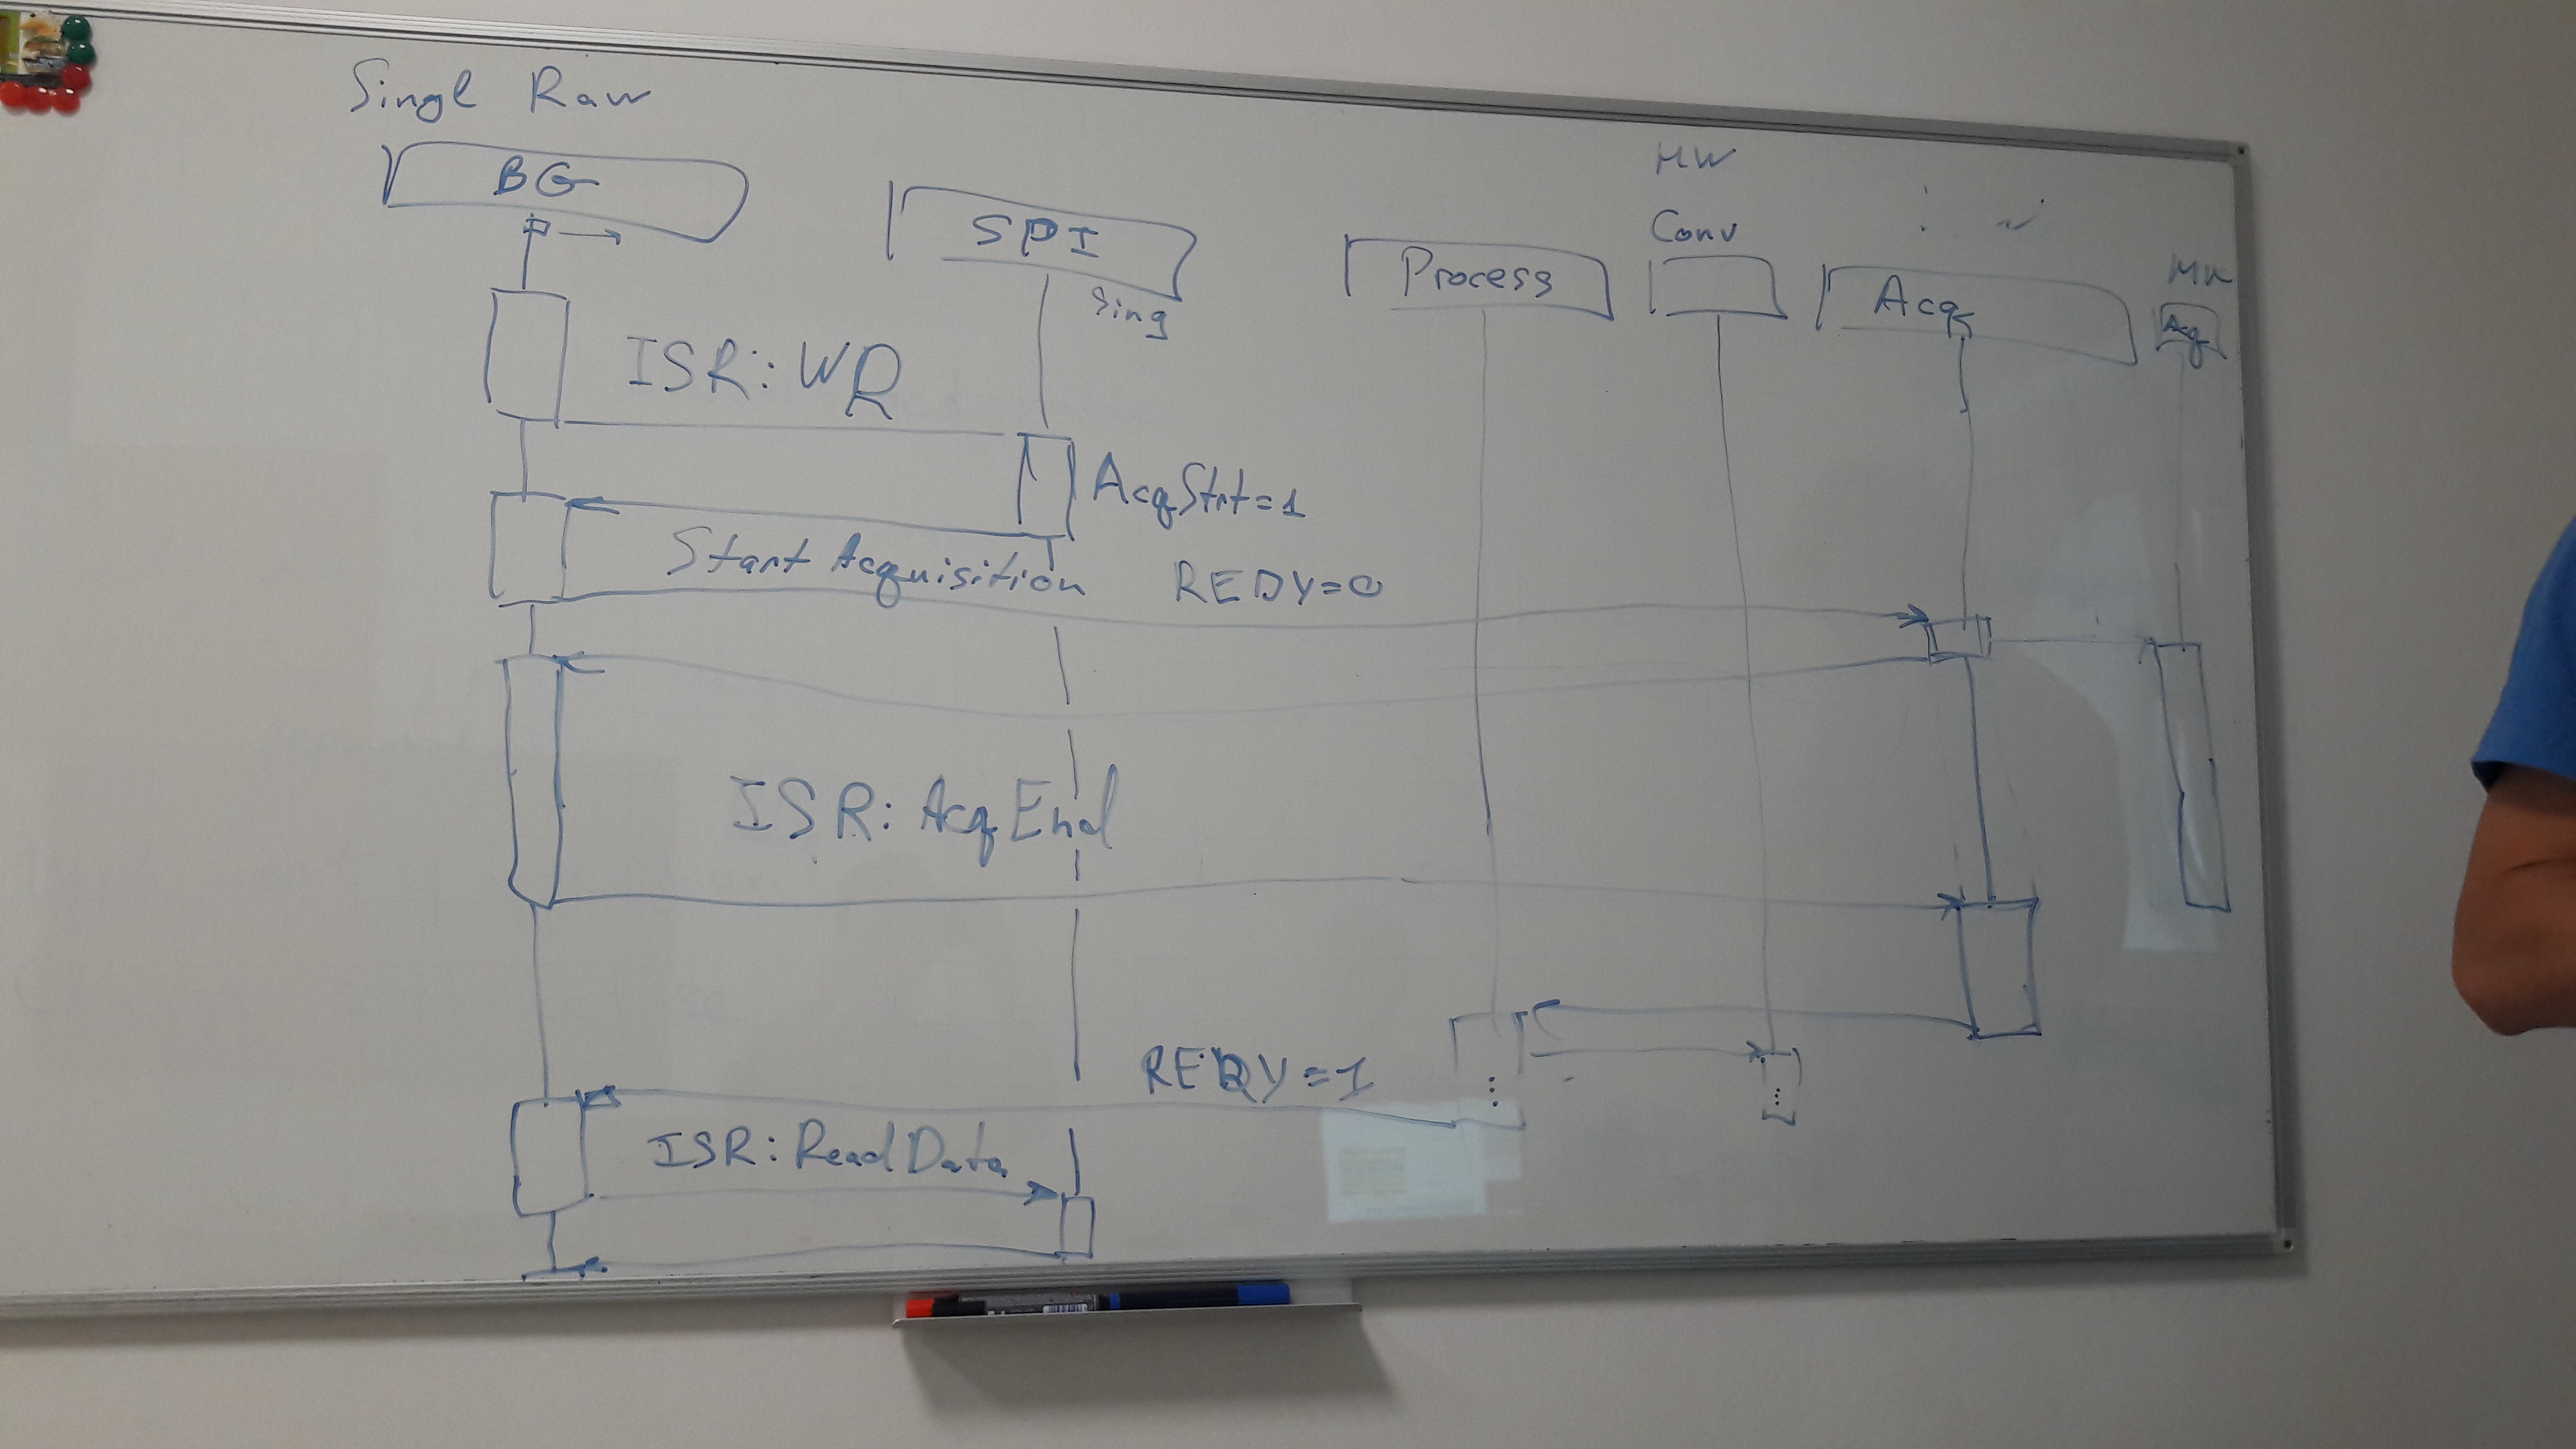 Singl Raw
BG
SPI
Sing
Process
HW
Conv
Acq
HW
Aq
ISR: WR
AcqStrt=1
Start Acquisition
REDY=0
ISR: AcqEnd
REDY=1
ISR: ReadData